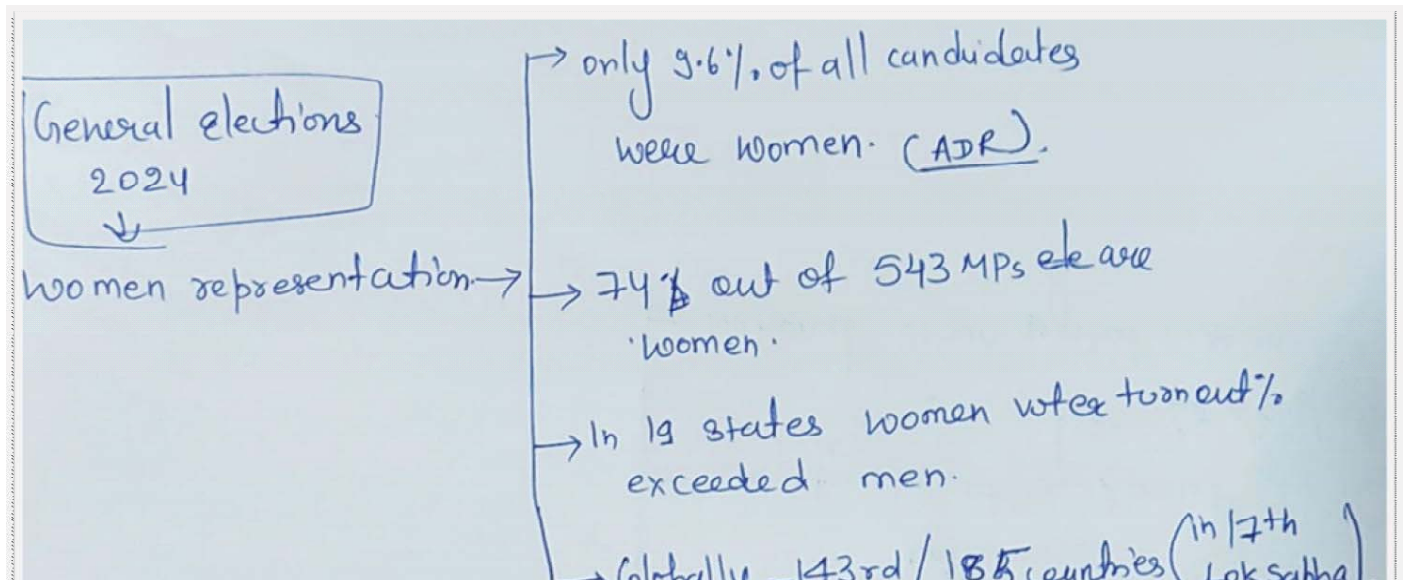 General elections
2024
women representation
only 9.6% of all candidates
were women. (ADR).
74 out of 543 MPs are
women.
In 19 states women voter turnout%
exceeded men.
Globally 143rd / 185 countries (in 17th
Lok Sabha)